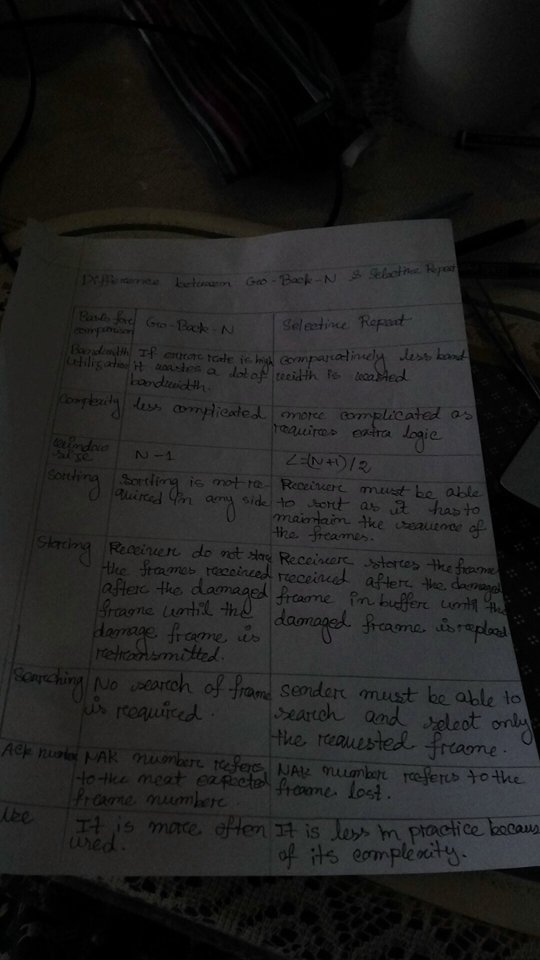 Difference between Go-Back-N & Selective Repeat
Basis for comparison
Go-Back-N
Selective Repeat
Bandwidth utilization
If error rate is high
it wastes a lot of
bandwidth.
comparatively less band
width is wasted
Complexity
less complicated
more complicated as
requires extra logic
window
size
N-1
<=(N+1)/2
Sorting
Sorting is not re-
quired in any side
Receiver must be able
to sort as it has to
maintain the sequence of
the frames.
Storing
Receiver do not store
the frames received
after the damaged
frame until the
damage frame is
retransmitted.
Receiver stores the frame
received after the damaged
frame in buffer until the
damaged frame is replaced
Searching
No search of frame
is required.
sender must be able to
search and select only
the requested frame.
Ack number
NAK number refers
to the next expected
frame number
NAK number refers to the
frame lost.
Use
It is more often
used.
It is less in practice because
of its complexity.